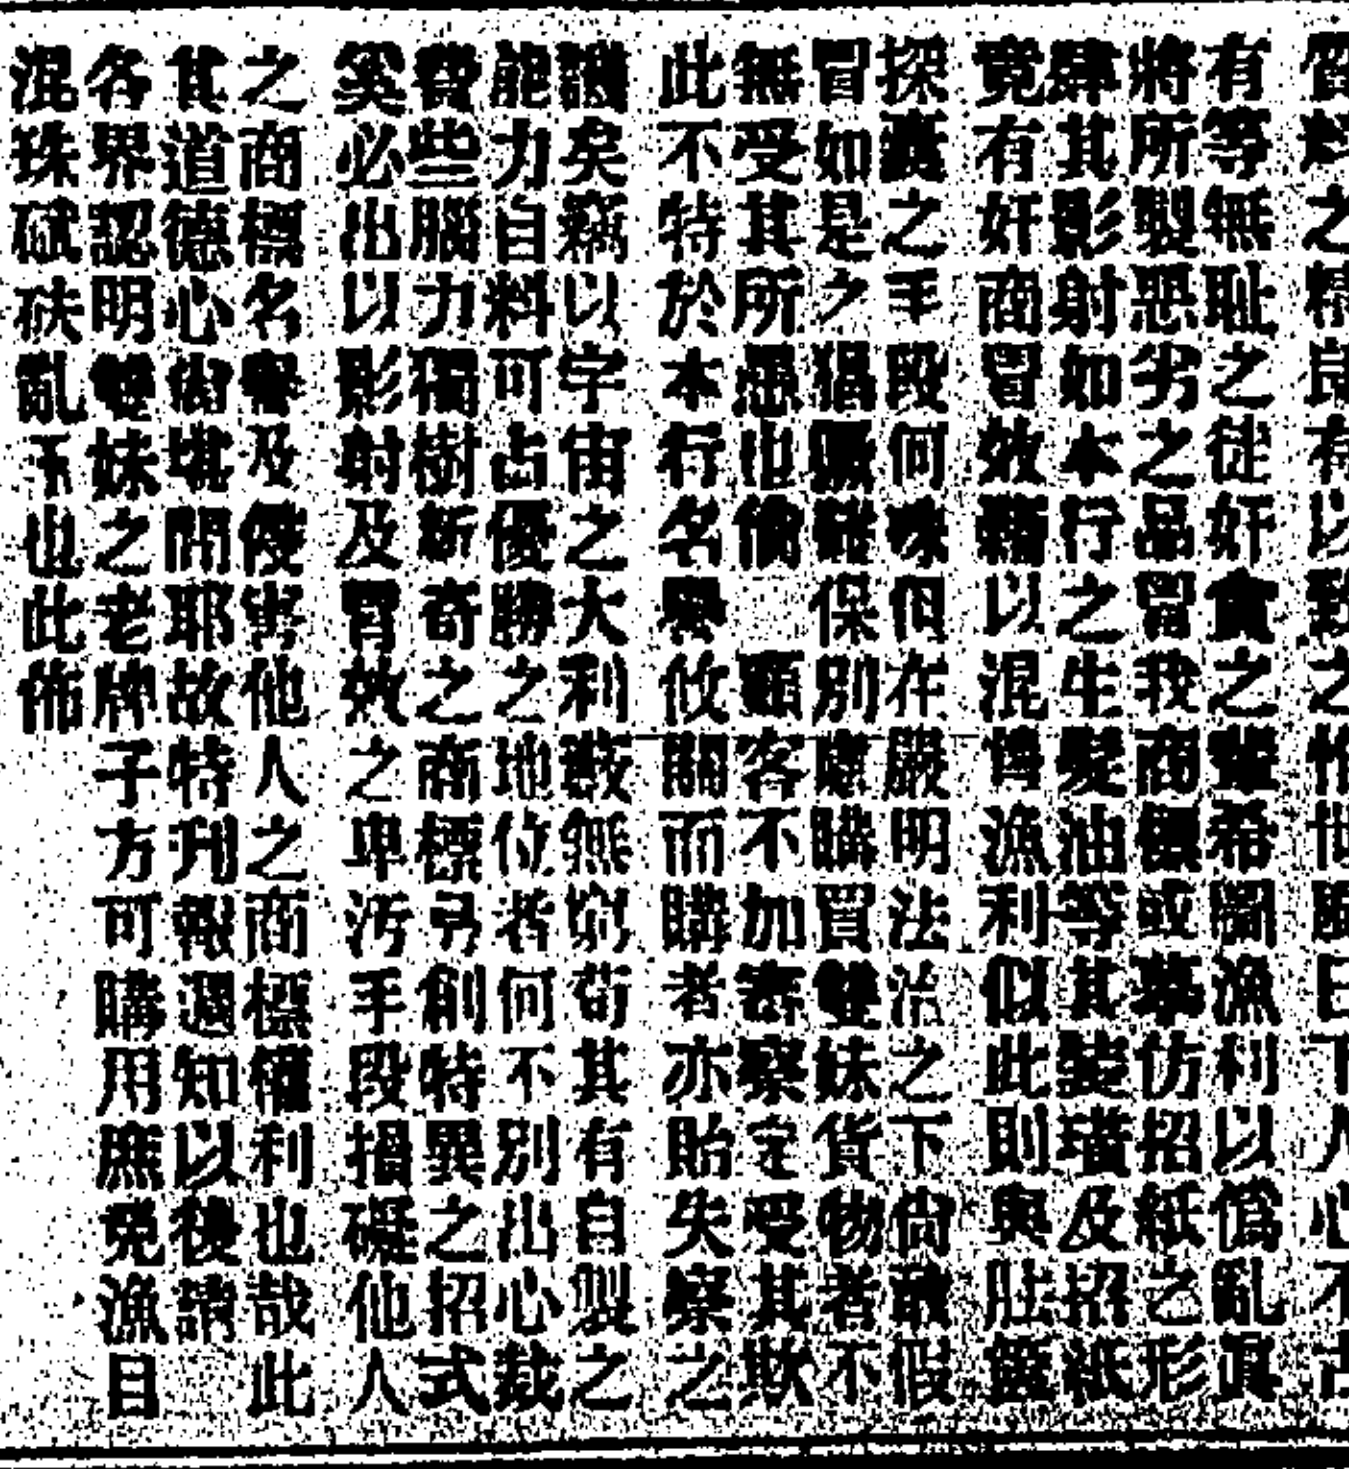 質料之精良有以致之惟世風日下人心不古
有等無耻之徒奸貪之輩希圖漁利以偽亂真
將所製惡劣之品冒我商標或摹仿招紙之形
肆其影射如本行之生髮油等其裝璜及招紙
竟有奸商冒效藉以混售漁利似此則與胠篋
探囊之手段何殊但在嚴明法治之下尚敢假
冒如是之猖獗難保別處購買雙妹貨物者不
無受其所愚也倘 顧客不加審察定受其欺
此不特於本行名譽攸關而購者亦貽失察之
譏矣竊以宇宙之大利藪無窮苟其有自製之
能力自料可占優勝之地位者何不別出心裁
費些腦力獨樹新奇之商標另創特異之招式
奚必出以影射及冒效之卑污手段損礙他人
之商標名譽及侵害他人之商標權利也哉此
其道德心尚堪問耶故特刊報週知以後請
各界認明雙妹之老牌子方可購用庶免漁目
混珠碔砆亂玉也此佈